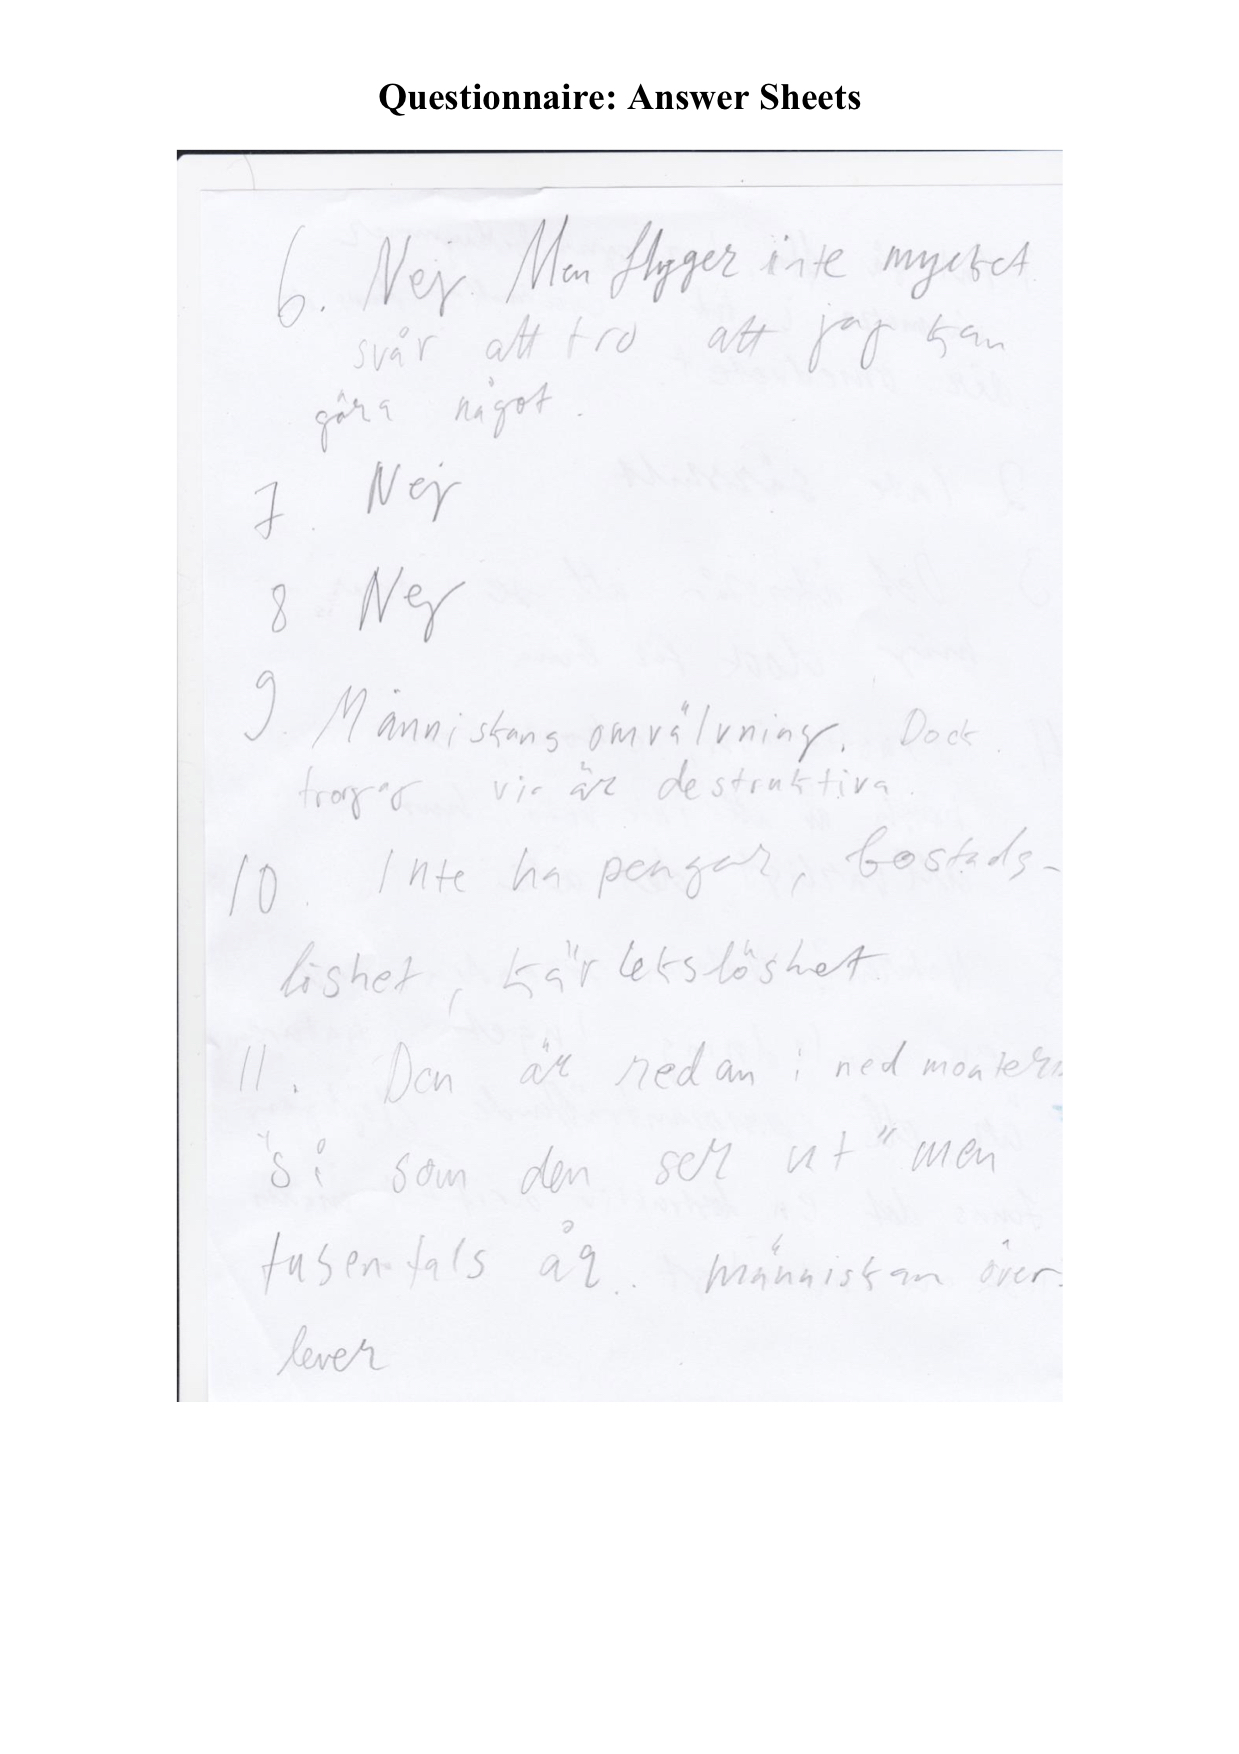 Questionnaire: Answer Sheets
6. Nej. Men flyger inte mycket
svår att tro att jag kan
göra något.
7. Nej
8 Nej
9. Människans omvälvning. Dock
är destruktiva.
10. Inte ha pengar, bostads-
löshet, kärlekslöshet.
11. Den är redan i nedmonterin
som den ser ut" men
tusentals år. människan över-
lever